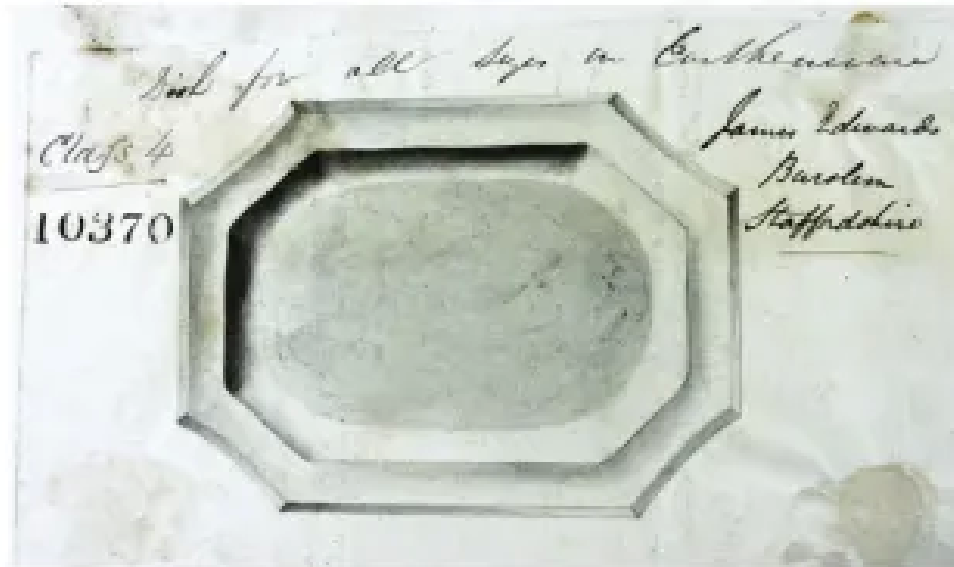 Dish for all Sizes in Earthenware
Class 4
10370
James Edwards
Burslem
Staffordshire